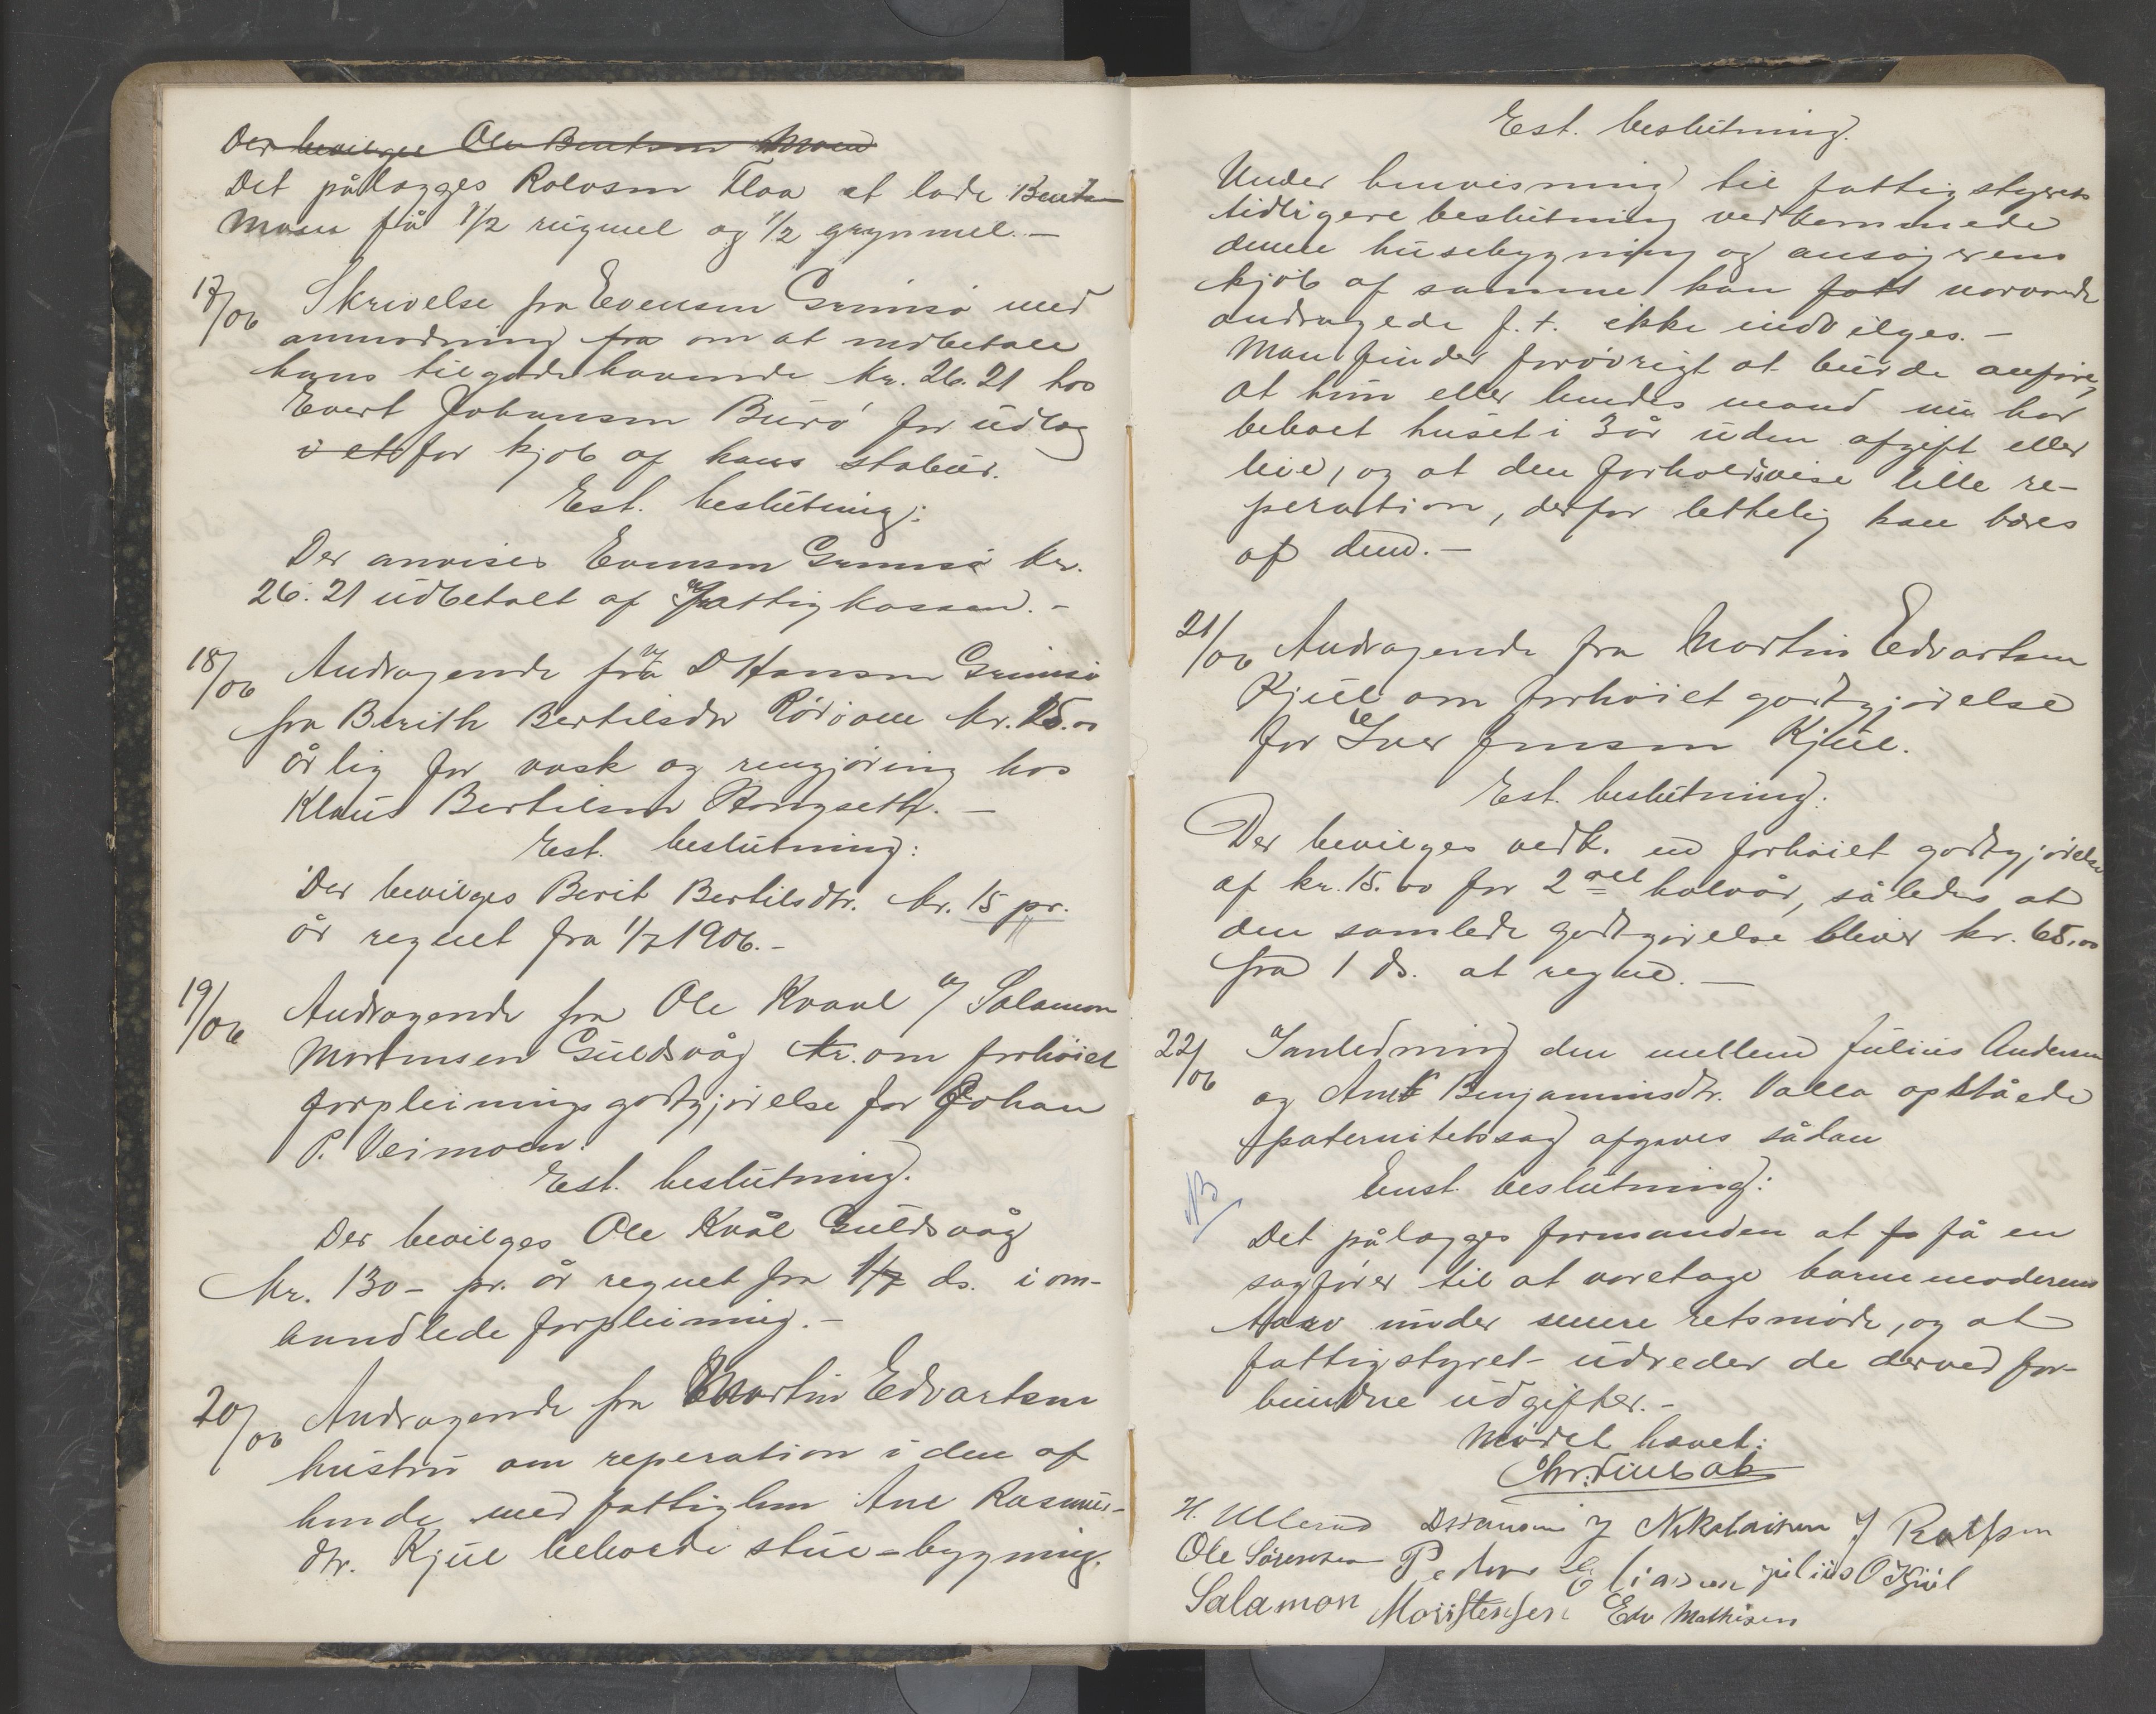 Der bevilges Ole Bentsen Moen
Det pålægges Rolvsen Flaa at lade Bentsen
Moen få 1/2 rugmel og 1/2 grynmel. –
17/06 Skrivelse fra Evensen Grimsø med
anmodning fra om at indbetale
hans tilgodehavende kr. 26.21 hos
Evert Johansen Burø for udlæg
i et for kjøb af hans stabur.
Est. beslutning:
Der anvises Evensen Grimsø kr.
26.21 udbetalt af Fattigkassen. –
18/06 Andragende fra D Hansen Grimsø
fra Berith Bertilsdr Rörioen kr. 25.00
årlig for vask og rengjøring hos
Klaus Bertilsen Rongseth. –
Est. beslutning:
Der bevilges Berit Bertilsdtr. kr. 15 pr.
år regnet fra 1/7 1906. –
19/06 Andragende fra Ole Kvaal o/ Salamon
Mortensen Guldsvåg kr. om forhøiet
forpleiningsgodtgjørelse for Johan
P. Veimoen.
Est. beslutning.
Der bevilges Ole Kvål Guldsvåg
kr. 130 – pr. år regnet fra 1/7 ds. i om-
handlede forpleining. –
20/06 Andragende fra Martin Edvartsen
hustru om reperation i den af
hende med fattiglem Ane Rasmus-
dtr. Kjul beboede stue-bygning.
Est. beslutning.
Under henvisning til fattigstyrets
tidligere beslutning vedkommende
denne husebygning og ansøgerens
kjøb af samme kan fatt nærværende
andragede f. t. ikke indvilges. –
Man finder forøvrigt at burde anføre,
at hun eller hendes mand nu har
beboet huset i 3 år uden afgift eller
leie, og at den forholdsvise lille re-
peration, derfor lettelig kan bæres
af dem. –
21/06 Andragende fra Martin Edvartsen
Kjul om forhøiet godtgjørelse
for Iver Jensen Kjul.
Est. beslutning:
Der bevilges vedk. en forhøiet godtgjørelse
af kr. 15.00 for 2det halvår, således at
den samlede godtgjørelse bliver kr. 65.00
fra 1 ds. at regne. –
22/06 I anledning den mellem Julius Andersen
og Ane Benjaminsdtr. Valla opståede
paternitetssag afgaves sådan
Enst. beslutning:
NB
Det pålægges formanden at fo få en
sagfører til at varetage barnemoderens
tarv under senere retsmøde, og at
fattigstyret udreder de derved for-
bundne udgifter. –
Mødet hævet:
Chr. Finbak
H. Ullerud J Nikolaisen J Rolfsen
Ole Sörensen Peder Eliassen julius O Kjul
Salamon Morstensen Edv Mathisen